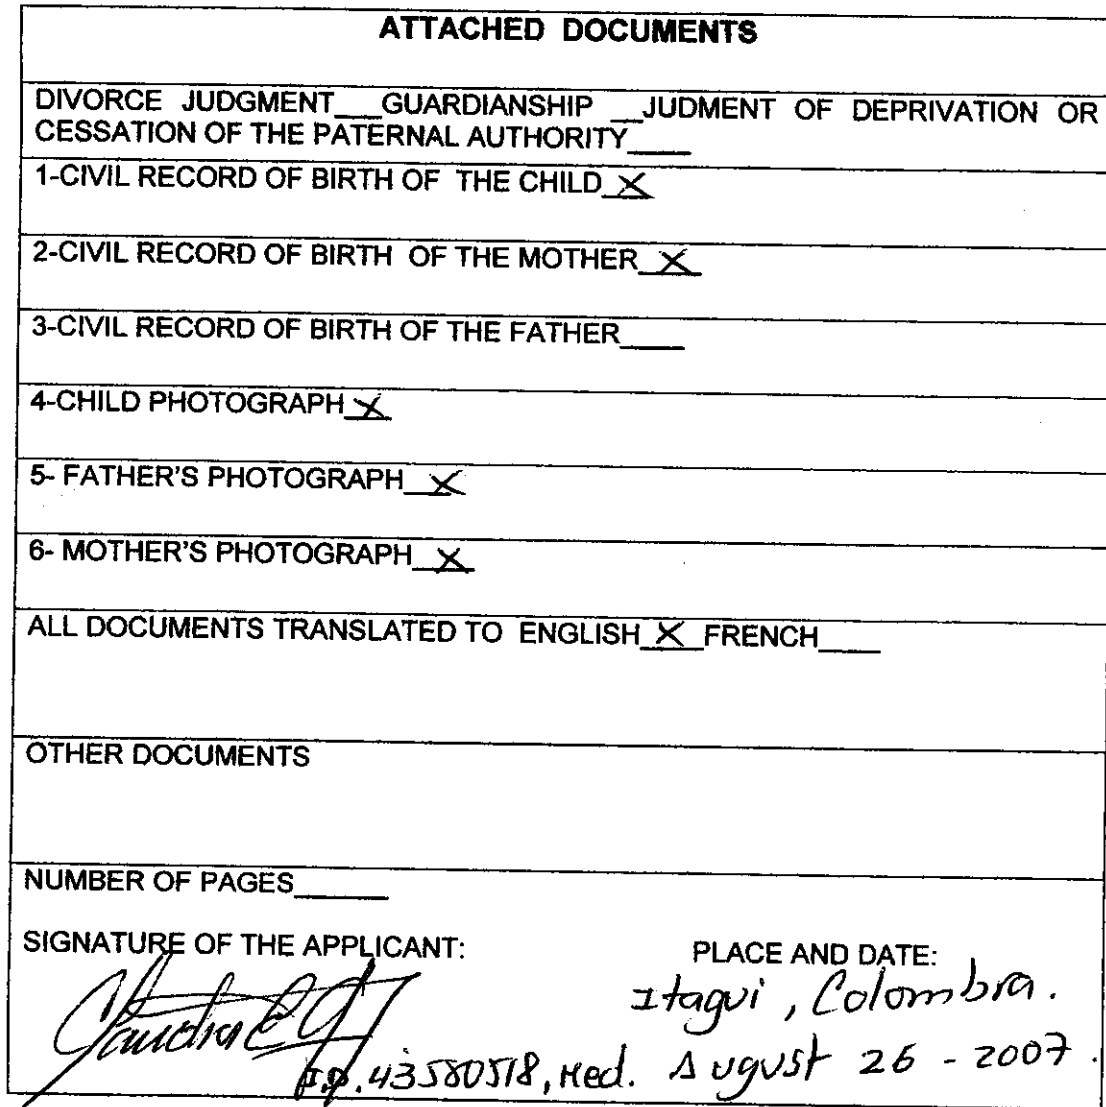 ATTACHED DOCUMENTS
DIVORCE JUDGMENT___GUARDIANSHIP __JUDMENT OF DEPRIVATION OR
CESSATION OF THE PATERNAL AUTHORITY____
1-CIVIL RECORD OF BIRTH OF THE CHILD X
2-CIVIL RECORD OF BIRTH OF THE MOTHER X
3-CIVIL RECORD OF BIRTH OF THE FATHER____
4-CHILD PHOTOGRAPH X
5- FATHER'S PHOTOGRAPH X
6- MOTHER'S PHOTOGRAPH X
ALL DOCUMENTS TRANSLATED TO ENGLISH X FRENCH____
OTHER DOCUMENTS
NUMBER OF PAGES______
SIGNATURE OF THE APPLICANT: PLACE AND DATE:
Itagui, Colombia.
Claudia
43580518, Med. August 26 - 2007.